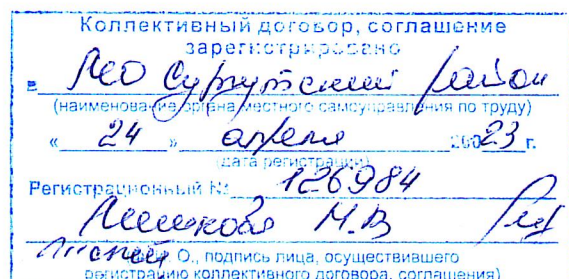 Коллективный договор, соглашение
зарегистрировано
в МО Сургутский район
(наименование органа местного самоуправления по труду)
« 24 » апреля 20023 г.
(дата регистрации)
Регистрационный № 126984
М.В
О., подпись лица, осуществившего
регистрацию коллективного договора, соглашения)